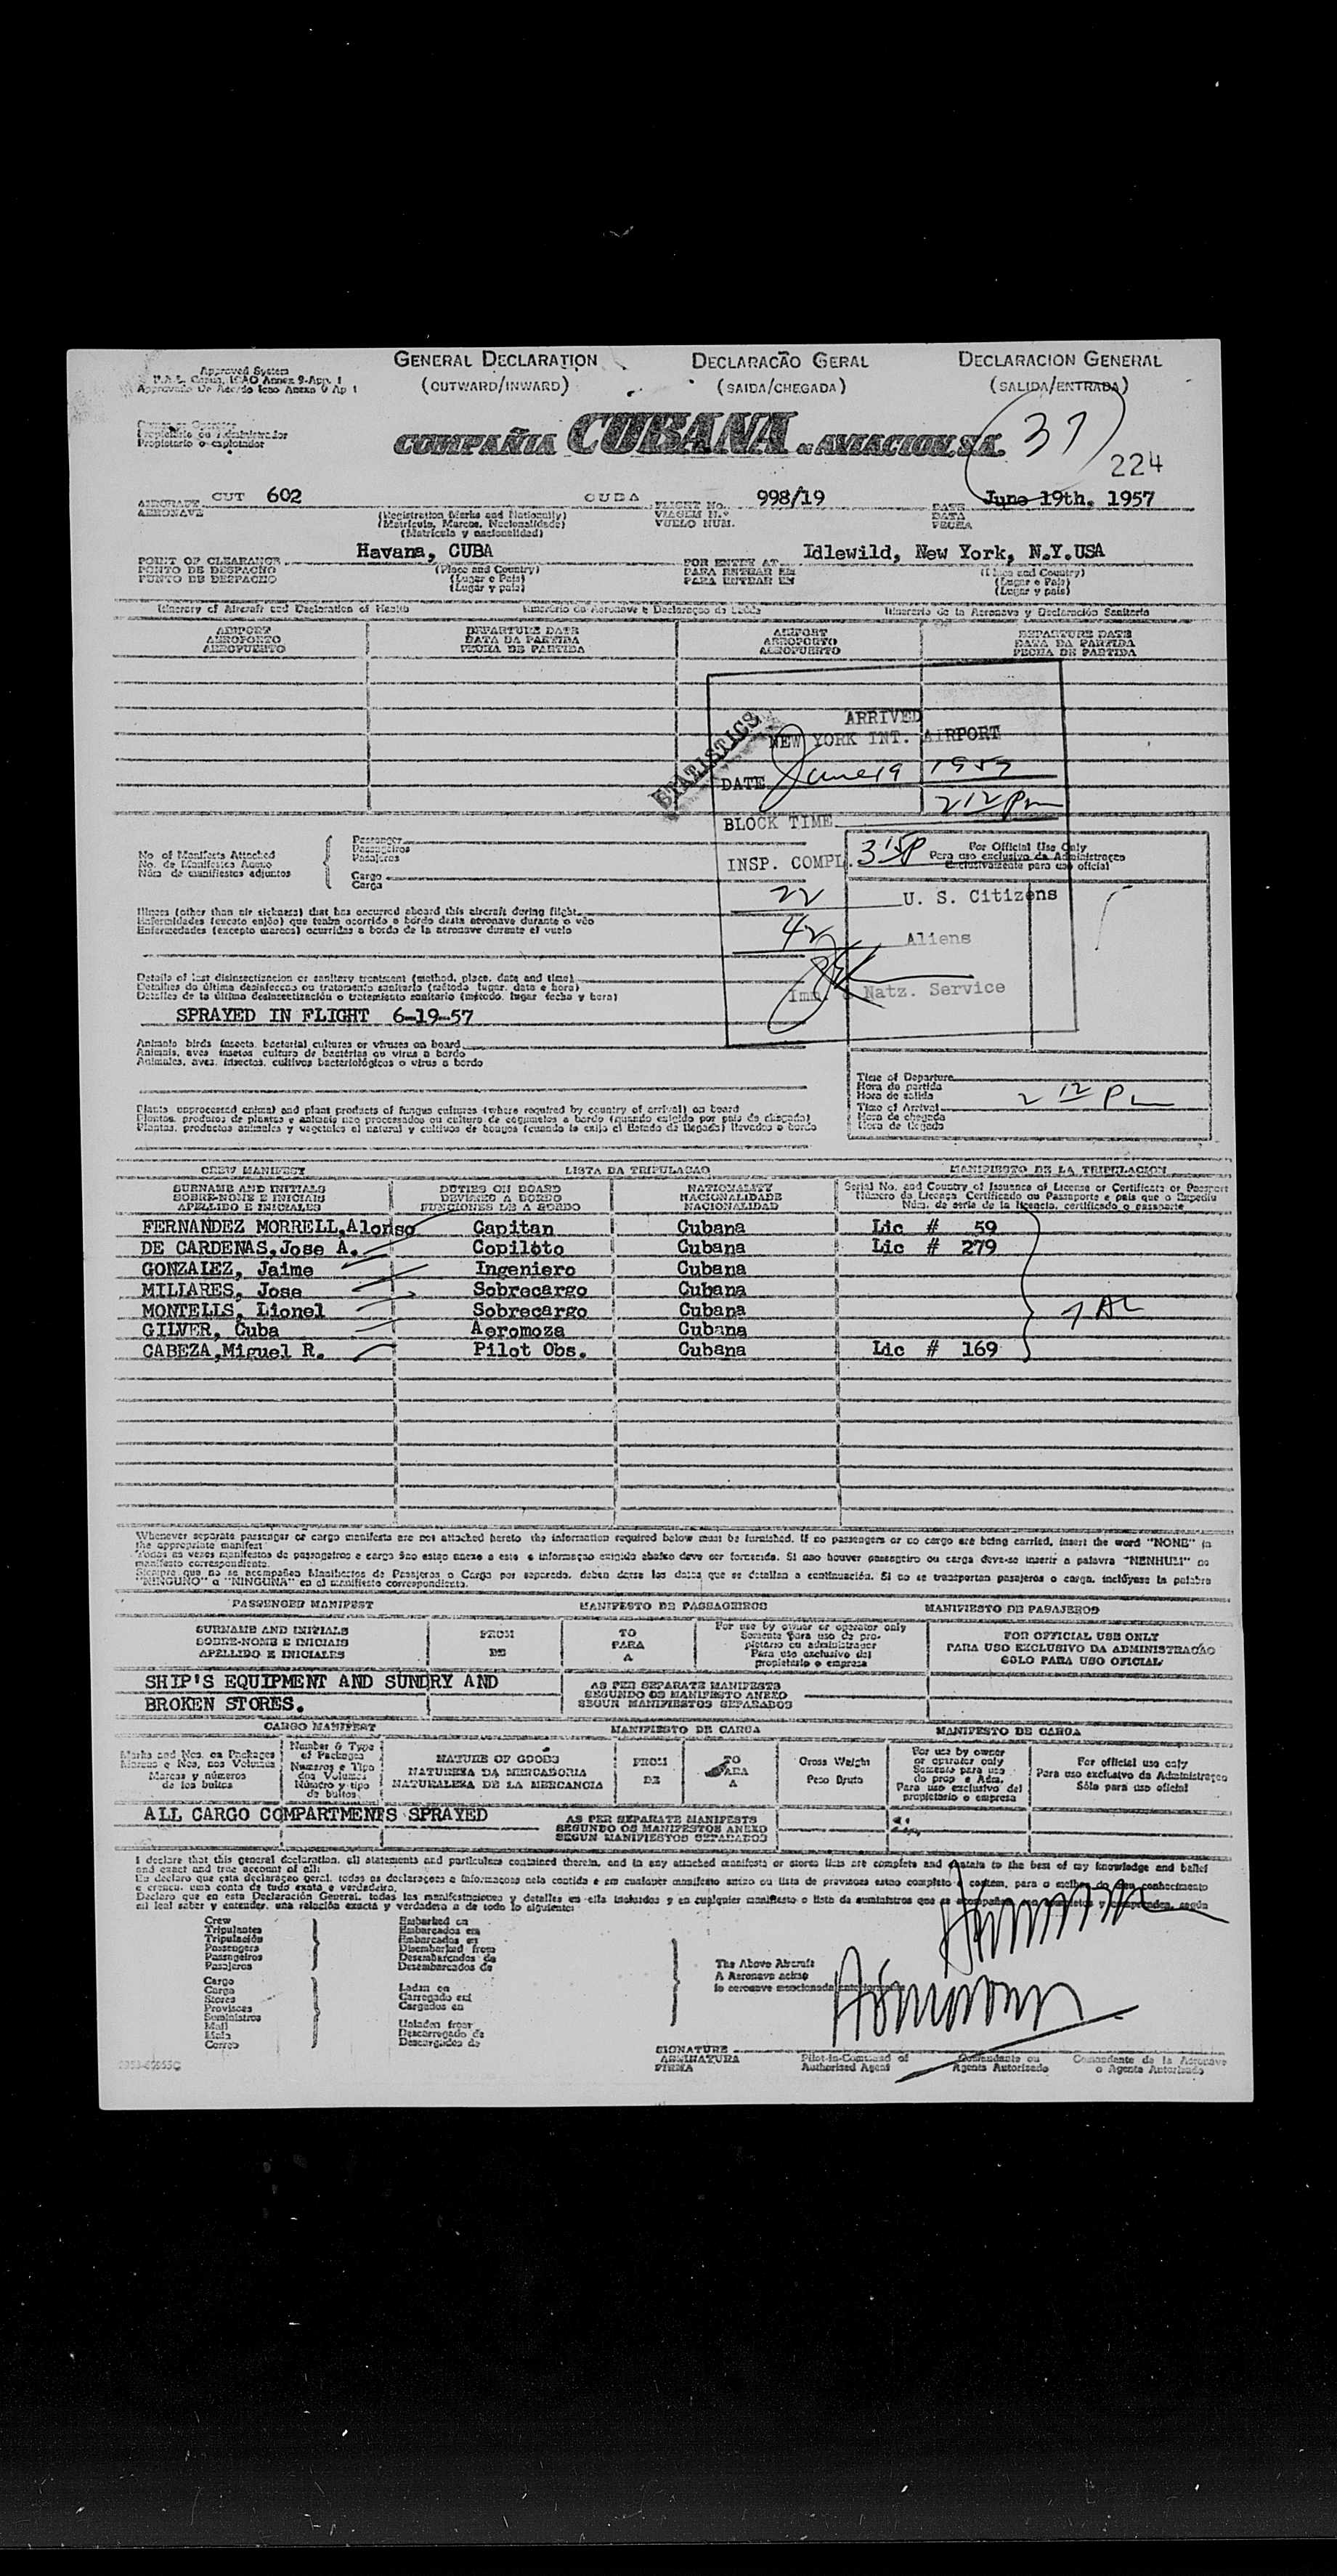 Approved System
GENERAL DECLARATION
(OUTWARD/INWARD)
DECLARACÃO GERAL
(SAIDA/CHEGADA)
DECLARACION GENERAL
(SALIDA/ENTRADA)
COMPAÑIA CUBANA DE AVIACION, S.A.
37
224
AIRCRAFT CUT 602 CUBA FLIGHT No. 998/19 DATE June 19th. 1957
AERONAVE VIAGEM N.º DATA
VUELO NUM. FECHA
(Registration Marks and Nationality)
(Matricula, Marcas, Nacionalidade)
(Matricula y nacionalidad)
POINT OF CLEARANCE Havana, CUBA FOR ENTRY AT Idlewild, New York, N.Y.USA
PONTO DE DESPACHO (Place and Country) PARA ENTRAR EM (Place and Country)
PUNTO DE DESPACHO (Lugar e Pais) PARA ENTRAR EN (Lugar e Pais)
(Lugar y pais) (Lugar y pais)
Itinerary of Aircraft and Declaration of Health Itinerário da Aeronave e Declaração de Saúde Itinerario de la Aeronave y Declaración Sanitaria
AIRPORT DEPARTURE DATE AIRPORT DEPARTURE DATE
AEROPORTO DATA DA PARTIDA AEROPORTO DATA DA PARTIDA
AEROPUERTO FECHA DE PARTIDA AEROPUERTO FECHA DE PARTIDA
STATISTICS
ARRIVED
NEW YORK INT. AIRPORT
DATE June 19 1957
BLOCK TIME 2 12 Pm
INSP. COMPL. 3 15P
22 U. S. Citizens
42 Aliens
Imm. & Natz. Service
No of Manifests Attached
No. de Manifestos Anexo
Núm de manifiestos adjuntos
Passenger
Passageiros
Pasajeros
Cargo
Carga
For Official Use Only
Para uso exclusivo da Administraçao
Exclusivamente para uso oficial
Illness (other than air sickness) that has occurred aboard this aircraft during flight
Enfermidades (exceto enjôo) que tenham ocorrido a bordo desta aeronave durante o vôo
Enfermedades (excepto mareos) ocurridas a bordo de la aeronave durante el vuelo
Details of last disinsectization or sanitary treatment (method, place, date and time)
Detalhes da última desinfeccao ou tratamento sanitario (método lugar, data e hora)
Detalles de la última desinsectización o tratamiento sanitario (método, lugar fecha y hora)
SPRAYED IN FLIGHT 6-19-57
Animals birds insects, bacterial cultures or viruses on board
Animais, aves insetos cultura de bactérias ou virus a bordo
Animales, aves, insectos, cultivos bacteriológicos o virus a bordo
Time of Departure
Hora da partida
Hora de salida
2 12 Pm
Time of Arrival
Hora de chegada
Hora de llegada
Plants unprocessed animal and plant products of fungus cultures (where required by country of arrival) on board
Plantas, produtos de plantas e animais nao processados ou cultura de cogumelos a bordo (quando exigido por pais de chegada)
Plantas, productos animales y vegetales al natural y cultivos de hongos (cuando lo exija el Estado de llegada) llevados a bordo
CREW MANIFEST LISTA DA TRIPULACAO MANIFIESTO DE LA TRIPULACION
SURNAME AND INITIALS DUTIES ON BOARD NATIONALITY Serial No. and Country of Issuance of License or Certificate or Passport
SOBRE-NOME E INICIAIS DEVERES A BORDO NACIONALIDADE Número da Licença Certificado ou Passaporte e pais que o Expediu
APELLIDO E INICIALES FUNCIONES DE A BORDO NACIONALIDAD Núm. de serie de la licencia, certificado o pasaporte
FERNANDEZ MORRELL,Alonso Capitan Cubana Lic # 59
DE CARDENAS,Jose A. Copiloto Cubana Lic # 279
GONZALEZ, Jaime Ingeniero Cubana
MILIARES, Jose Sobrecargo Cubana
MONTELLS, Lionel Sobrecargo Cubana
GILVER, Cuba Aeromoza Cubana
CABEZA,Miguel R. Pilot Obs. Cubana Lic # 169
7 AL
Whenever separate passenger or cargo manifests are not attached hereto the information required below must be furnished. If no passengers or no cargo are being carried, insert the word "NONE" in
the appropriate manifest
Todas as vezes manifestos de passageiros e carga não estao anexo a este a informaçao exigida abaixo deve ser fornecida. Si nao houver passageiro ou carga deve-se inserir a palavra "NENHUM" no
manifesto correspondiente.
Siempre que no se acompañen Manifiestos de Pasajeros o Carga por separado, deben darse los datos que se detallan a continuación. Si no se transportan pasajeros o carga, inclúyase la palabra
"NINGUNO" o "NINGUNA" en el manifiesto correspondiente.
PASSENGER MANIFEST MANIFESTO DE PASSAGEIROS MANIFIESTO DE PASAJEROS
SURNAME AND INITIALS FROM TO For use by owner or operator only FOR OFFICIAL USE ONLY
SOBRE-NOME E INICIAIS DE PARA Somente para uso de pro- PARA USO EXCLUSIVO DA ADMINISTRAÇÃO
APELLIDO E INICIALES A pietario ou administrador SOLO PARA USO OFICIAL
Para uso exclusivo del
propietario o empresa
SHIP'S EQUIPMENT AND SUNDRY AND AS PER SEPARATE MANIFESTS
BROKEN STORES. SEGUNDO OS MANIFESTO ANEXO
SEGUN MANIFIESTOS SEPARADOS
CARGO MANIFEST MANIFIESTO DE CARGA MANIFESTO DE CARGA
Marks and Nos. on Packages
Marcas e Nos. nos Volumes
Marcas y números
de los bultos
Number & Type
of Packages
Numeros e Tipo
dos Volumes
Número y tipo
de bultos
NATURE OF GOODS
NATUREZA DA MERCADORIA
NATURALEZA DE LA MERCANCIA
FROM
DE
TO
PARA
A
Gross Weight
Peso Bruto
For use by owner
or operator only
Somente para uso
do prop e Adm.
Para uso exclusivo del
propietario o empresa
For official use only
Para uso exclusivo da Administraçao
Sólo para uso oficial
ALL CARGO COMPARTMENTS SPRAYED AS PER SEPARATE MANIFESTS
SEGUNDO OS MANIFESTOS ANEXO
SEGUN MANIFIESTOS SEPARADOS
I declare that this general declaration, all statements and particulars contained therein, and in any attached manifests or stores lists are complete and contain to the best of my knowledge and belief
and exact and true account of all:
Eu declaro que esta declaraçao geral, todas as declaraçoes e informaçoes nela contida e em cualquer manifesto anexo ou lista de previsoes estao completo e contem, para o melhor do meu conhecimento
e crença, uma conta de tudo exata e verdadeira.
Declaro que en esta Declaración General, todas las manifestaciones y detalles en ella incluidos y en cualquier manifiesto o lista de suministros que se acompañan son completos y comprenden, según
mi leal saber y entender, una relación exacta y verdadera a de todo lo siguiente:
Crew
Tripulantes
Tripulación
Passengers
Passageiros
Pasajeros
Cargo
Carga
Stores
Provisoes
Suministros
Mail
Mala
Correo
Embarked on
Embarcados em
Embarcados en
Disembarked from
Desembarcados da
Desembarcados de
Laden on
Carregado em
Cargados en
Unladen from
Descarregado da
Descargados de
The Above Aircraft
A Aeronave acima
la aeronave mencionada
SIGNATURE
ASSINATURA
FIRMA
Pilot-in-Command of
Authorized Agent
Comandante ou
Agente Autorizado
Comandante de la Aeronave
o Agente Autorizado